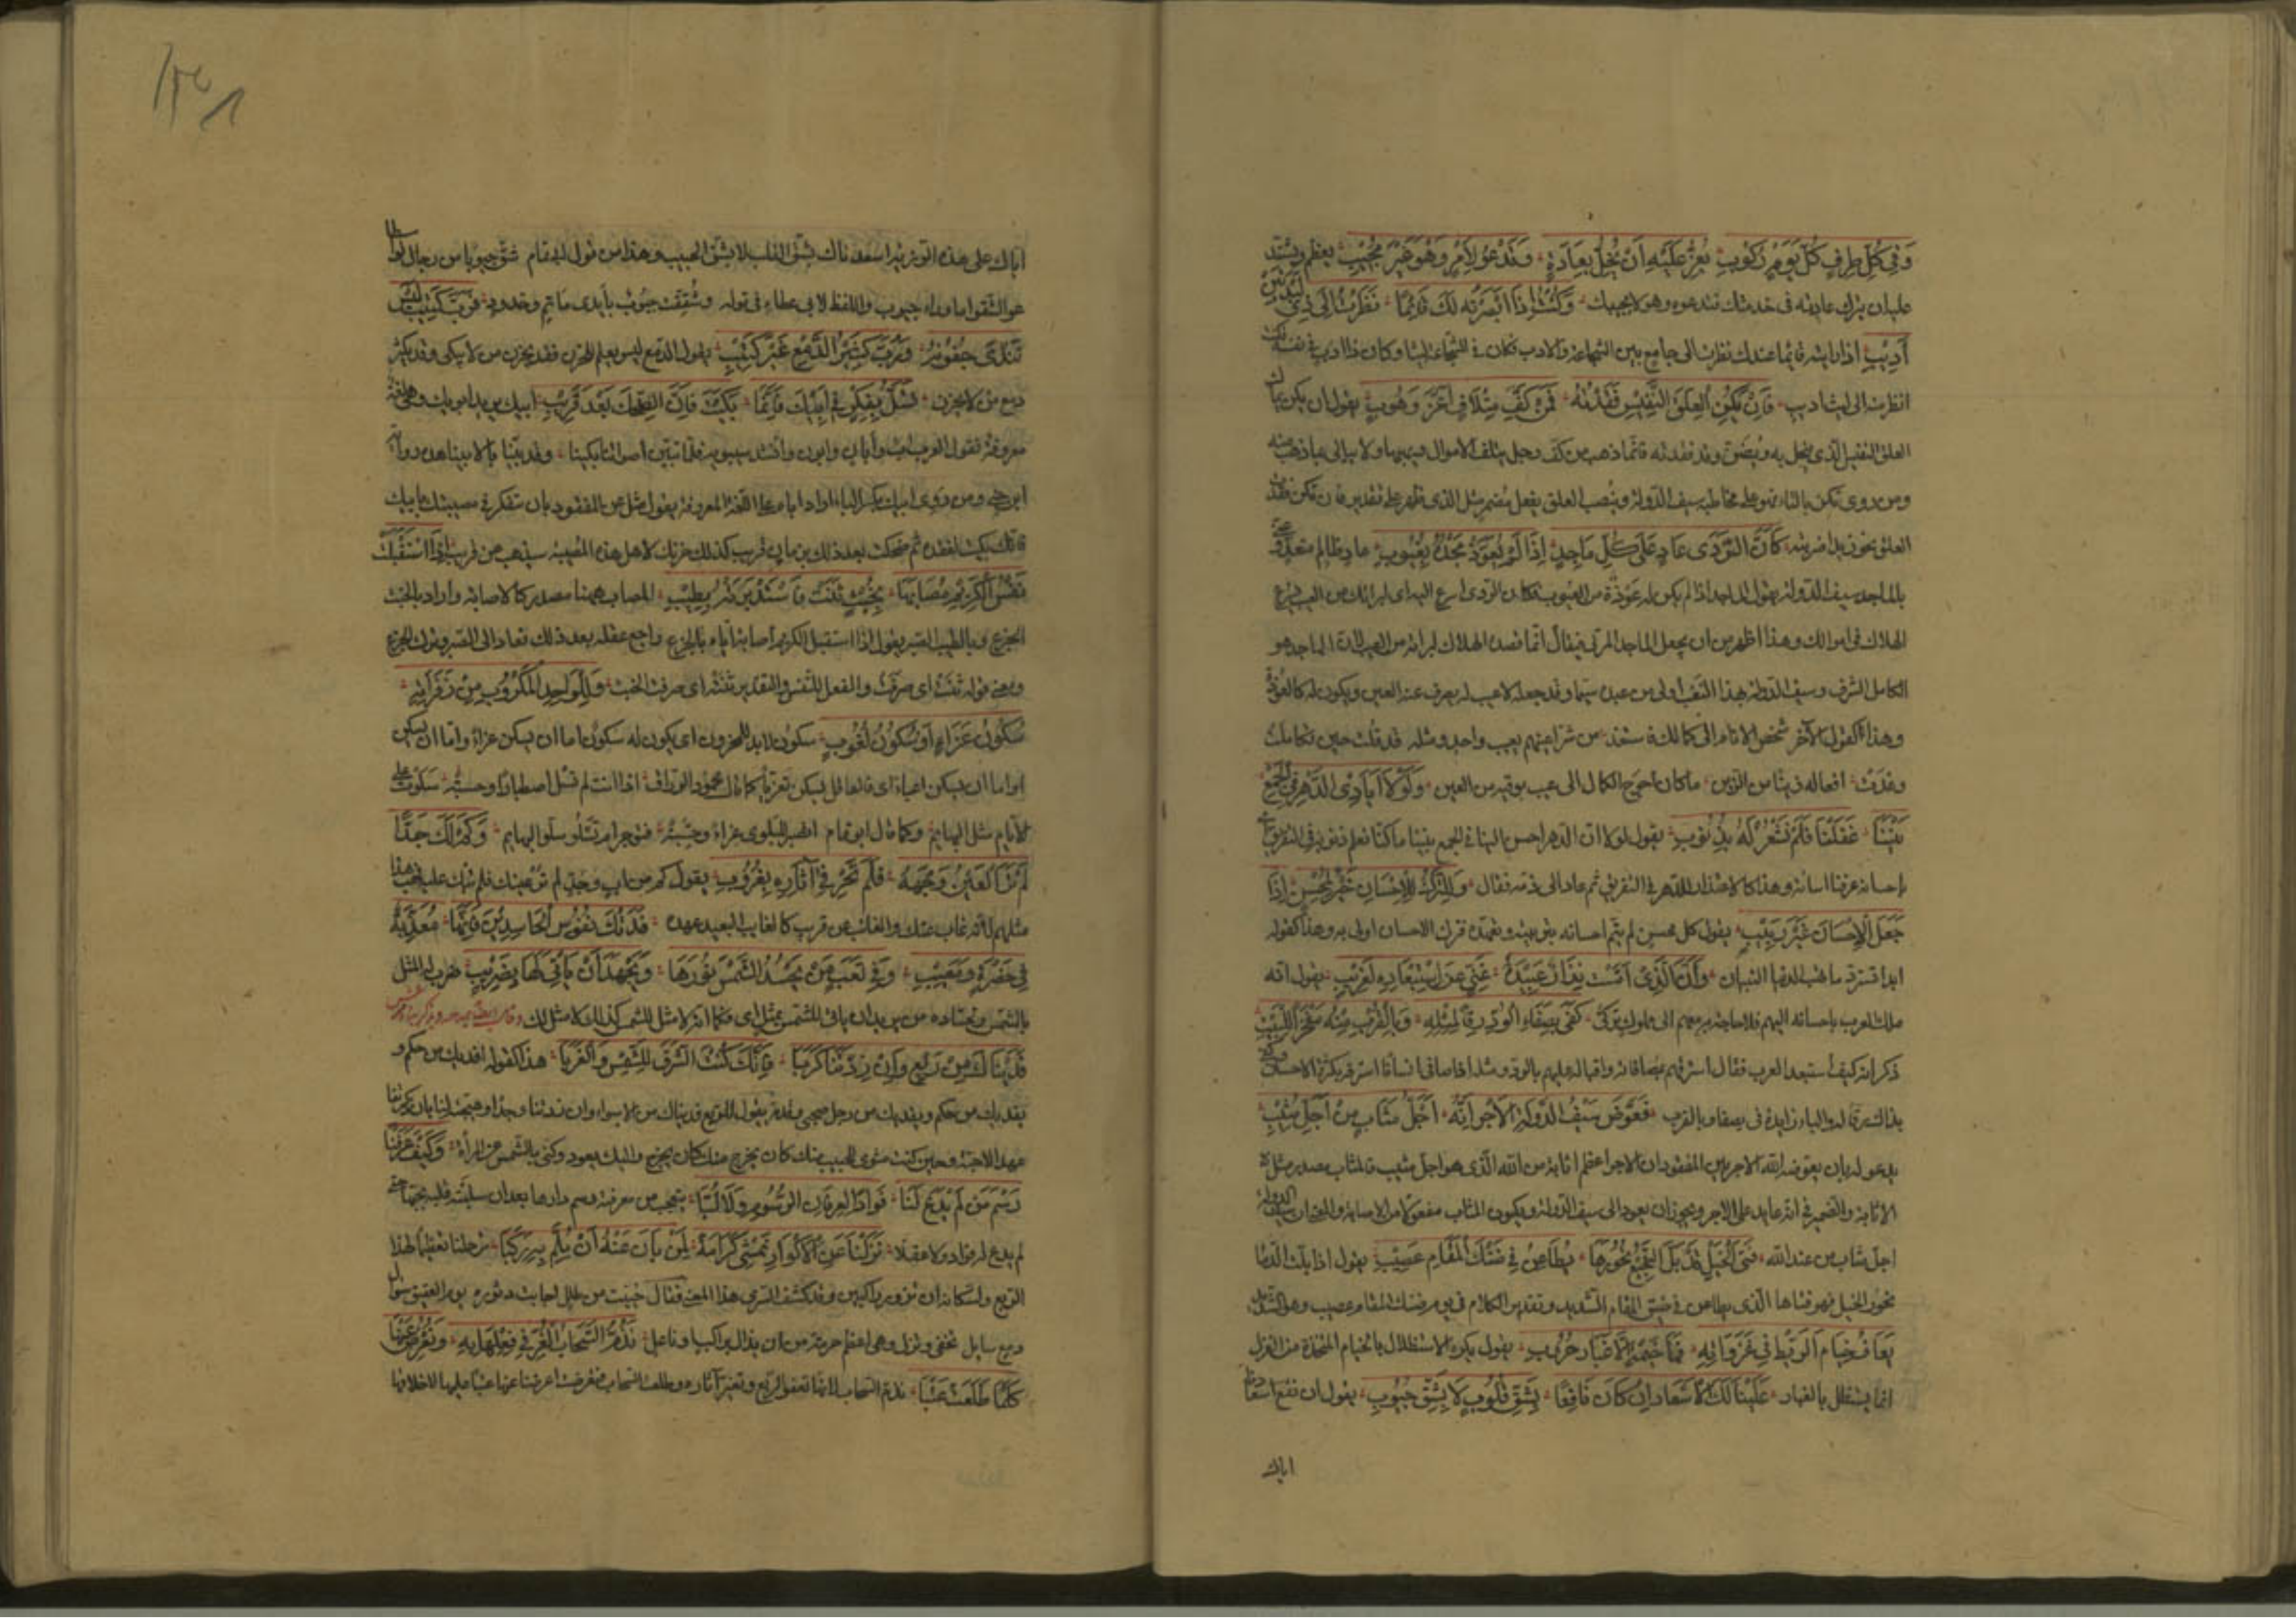 وَفِي كُلِّ طِرفٍ كُلَّ يَومٍ رُكُوبِ يَعِزُّ عَلَيهِ أَن يُخِلَّ بِعَادَةٍ وَتَدعُو لِأَمرٍ وَهوَ غَيرُ مُجِيبِ يعظم ويشتد
عليه ان يترك عادته فى خدمتك تدعوه وهو لا يجيبك وَكُنتُ إِذَا أَبصَرتُه لَكَ قَائِمًا نَظَرتُ إِلَى ذِي لِبدَتَينِ
أَدِيبِ اذا رايته قائما عندك نظرت الى جامع بين الشجاعة والادب فكان فى الشجاعة ليثا وكان ذا ادب فى نفسه
نظرت الى ليث اديب فَإِن يَكُنِ العِلقَ النَّفِيسَ فَقَدتَهُ فَمِن كَفِّ مِتلَافٍ أَغَرَّ وَهُوبِ يقول ان يكن
العلق النفيس الذى يبخل به ويضن وقد فقدته فانما ذهب من كف رجل يتلف الاموال ويهبها ولا يبالى بما ذهب منه
ومن روى تكن بالتاء فهو على مخاطبة سيف الدولة وينصب العلق بفعل مضمر مثل الذى ظهر على تقدير فان تكن فقدت
العلق كَأَنَّ الرَّدَى عَادٍ عَلَى كُلِّ مَاجِدٍ إِذَا لَم يُعَوِّذ مَجدَهُ بِعُيُوبِ عاد ظالم متعد
بالماجد سيف الدولة يقول الماجد اذا لم يكن له عوذة من العيوب كان الردى اسرع اليه
الهلاك فى اموالك وهذا اظهر من ان يجعل الماجد المرثى فيقال انما قصده الهلاك لبراءته من العيب لان الماجد هو
الكامل الشرف وسيف الدولة بهذا اولى من عبده سيما وقد جعله لا عيب له يصرف عنه العين ويكون له كالعوذة
وهذا كقول الآخر شخص الانام الى كمالك فاستعذ من شر اعينهم بعيب واحد ومثله قد قلت حين تكاملت
وغدت افعاله زينا من الزين ما كان احوج ذا الكمال الى عيب يوقيه من العين وَلَولَا أَيَادِي الدَّهرِ فِي الجَمعِ
بَينَنَا غَفَلنَا فَلَم نَشعُر لَهُ بِذُنُوبِ يقول لولا ان الدهر احسن الينا فى الجمع بيننا ما كنا نعلم ذنوبه فى التفريق
باحسانه عرفنا اساءته وهذا كالاعتذار للدهر فى التفريق ثم عاد الى ذمه فقال وَلَلتَّركُ لِلإِحسَانِ خَيرٌ لِمُحسِنٍ إِذَا
جَعَلَ الإِحسَانَ غَيرَ رَبِيبِ يقول كل محسن لم يتم احسانه فترك الاحسان اولى به وهذا كقوله
ابدا تسترد ما تهب الدنيا وَإِنَّ الَّذِي أَمسَت نِزَارٌ عَبِيدَهُ غَنِيٌّ عَنِ استِعبَادِهِ لِغَرِيبِ يقول انه
ملك العرب باحسانه اليهم فلا حاجة به معهم الى مملوك تركى كَفَى بِصَفَاءِ الوُدِّ رِقًّا لِمِثلِهِ وَبِالقُربِ مِنهُ مَفخَرًا لِلَبِيبِ
ذكر انه كيف استعبد العرب فقال استرقهم بمصافاته واقباله عليهم بالود ومثله اذا صافى انسانا استرقه بكثرة الاحسان
والباء زايدة فى بصفاء وبالقرب فَعُوِّضَ سَيفُ الدَّولَةِ الأَجرَ إِنَّهُ أَجَلُّ مُثَابٍ مِن أَجَلِّ مُثِيبِ
يدعو له بان يعوضه الله الاجر من المفقود لان الاجر اعظم اثابة من الله الذى هو اجل مثيب فالمثاب مصدر مثل
الاثابة والضمير فى انه عايد على الاجر ويجوز ان يعود الى سيف الدولة ويكون المثاب مفعولا من الاصابة والمعنى ان سيف الدولة
اجل مثاب من عند الله فَتَى الخَيلِ قَد بَلَّ النَّجِيعُ نُحُورَهَا يُطَاعِنُ فِي ضَنكِ المَقَامِ عَصِيبِ يقول اذا بلت الدما
نحور الخيل فهو فتاها الذى يطاعن فى ضيق المقام الشديد وتقدير الكلام فى يوم ضنك المقام عصيب وهو الشديد
يَعَافُ خِيَامَ الرَّيطِ فِي غَزَوَاتِهِ فَمَا خَيمُهُ إِلَّا غُبَارُ حُرُوبِ يقول يكره الاستظلال بالخيام المتخذة من الغزل
انما يستظل بالغبار عَلَينَا لَكَ الإِسعَادُ إِن كَانَ نَافِعًا بِشَقِّ قُلُوبٍ لَا بِشَقِّ جُيُوبِ يقول ان نفع اسعادنا
اياك
اياك على هذه الرزية اسعدناك بشق القلب لا بشق الجيب وهذا من قول ابى تمام شق جيوبا من رجال لو
استطاعوا لشقوا ما وراء جيوب واللفظ لابى عطاء فى قوله وشققت جيوب بايدى ماتم وخدود فَرُبَّ كَئِيبٍ لَيسَ
تَندَى جُفُونُهُ وَرُبَّ كَثِيرِ الدَّمعِ غَيرُ كَئِيبِ يقول الدمع ليس يعلم الحزن فقد يحزن من لا يبكى وقد يكثر
دمع من لا يحزن تَسَلَّ بِفِكرٍ فِي أَبِيكَ فَإِنَّمَا بَكَيتَ فَكَانَ الضِّحكُ بَعدَ قَرِيبِ ابيك يريد ابويك وهى لغة
معروفة تقول العرب اب وابان وابون وانشد سيبويه فلما تبين اصواتنا بكينا وفديننا بالابينا هذه رواية
ابن جنى ومن روى ابيك بكسر الباء اراد اباه على اللغة المعروفة يقول تسل عن المفقود بان تتفكر فى مصيبتك بابيك
فانك بكيت لفقده ثم ضحكت بعد ذلك بزمان قريب كذلك حزنك لاجل هذه المصيبة سيذهب عن قريب إِذَا استَقبَلَت
نَفسُ الكَرِيمِ مُصَابَهَا بِخُبثٍ ثَنَت فَاستَدبَرَتهُ بِطِيبِ المصاب ههنا مصدر كالاصابة واراد بالخبث
الجزع وبالطيب الصبر يقول اذا استقبل الكريم اصابة اياه بالجزع راجع عقله بعد ذلك فعاد الى الصبر وترك الجزع
ومعنى قوله ثنت اى صرفت والفعل للنفس والتقدير ثنته اى صرفت الخبث وَلِلوَاجِدِ المَكرُوبِ مِن زَفَرَاتِهِ
سُكُونُ عَزَاءٍ أَو سُكُونُ لُغُوبِ سكون لا بد للمحزون ان يكون له سكون اما ان يسكن عزاء واما ان يسكن
اعياء اى فالعاقل يسكن تعزيا كما قال محمود الوراق اذا انت لم تسل اصطبارا وحسبة سلوت على
الايام مثل البهايم وكما قال ابو تمام اتصبر للبلوى عزاء وحسبة فتوجر ام تسلو سلو البهايم وَكَم لَكَ جَدًّا
لَم تَرَ العَينُ وَجهَهُ فَلَم تَجرِ فِي آثَارِهِ بِغُرُوبِ يقول كم من اب وجد لم تر عينك فلم تبك عليه
مثلهم لانه غاب عنك والغائب عن قريب كالغايب البعيد عهده فَدَتكَ نُفُوسُ الحَاسِدِينَ فَإِنَّهَا مُعَذَّبَةٌ
فِي حَضرَةٍ وَمَغِيبِ وَفِي تَعَبٍ مَن يَحسُدُ الشَّمسَ نُورَهَا وَيَجهَدُ أَن يَأتِي لَهَا بِضَرِيبِ ضرب له المثل
بالشمس وحساده من يريد ان ياتى للشمس بمثل اى فكما انه لا مثل للشمس كذلك لا مثل لك
فَدَينَاكَ مِن رَبعٍ وَإِن زِدتَنَا كَربًا فَإِنَّكَ كُنتَ الشَّرقَ لِلشَّمسِ وَالغَربَا هذا كقوله افديك من حكم و
يفديك من رجل صحبى وافديكا يقول للربع فديناك من الاسواء وان زدتنا وجدا وهيجت لنا بان ذكرتنا
عهد الاحبة وحين كنت مثوى للحبيب منك كان يخرج واليك يعود وكنى بالشمس عن المرأة وَكَيفَ عَرَفنَا
رَسمَ مَن لَم يَدَع لَنَا فُؤَادًا لِعِرفَانِ الرُّسُومِ وَلَا لُبَّا يتعجب من معرفته رسم دارها بعد ان سلبته قلبه
لم يدع له فؤاد ولا عقلا نَزَلنَا عَنِ الأَكوَارِ نَمشِي كَرَامَةً لِمَن بَانَ عَنهُ أَن نُلِمَّ بِهِ رَكبَا ترجلنا تعظيما لهذا
الربع ولسكانه ان نزوره راكبين وقد كشف السرى هذا المعنى فقال حييت من طلل اجاب دثوره يوم العقيق سؤال
دمع سايل نحفى وننزل وهو اعظم حرمة من ان يذال براكب او ناعل نَذُمُّ السَّحَابَ الغُرَّ فِي فِعلِهَا بِهِ وَنُعرِضُ عَنهَا
كُلَّمَا طَلَعَت عَتبَا نذم السحاب لانها تعفو الربع وتغير آثاره واذا طلعت السحاب اعرضنا عنها عتبا عليها لاخلاقها